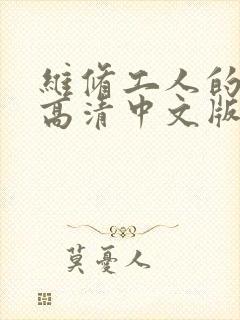 維脩工人的
高清中文版
莫憂人